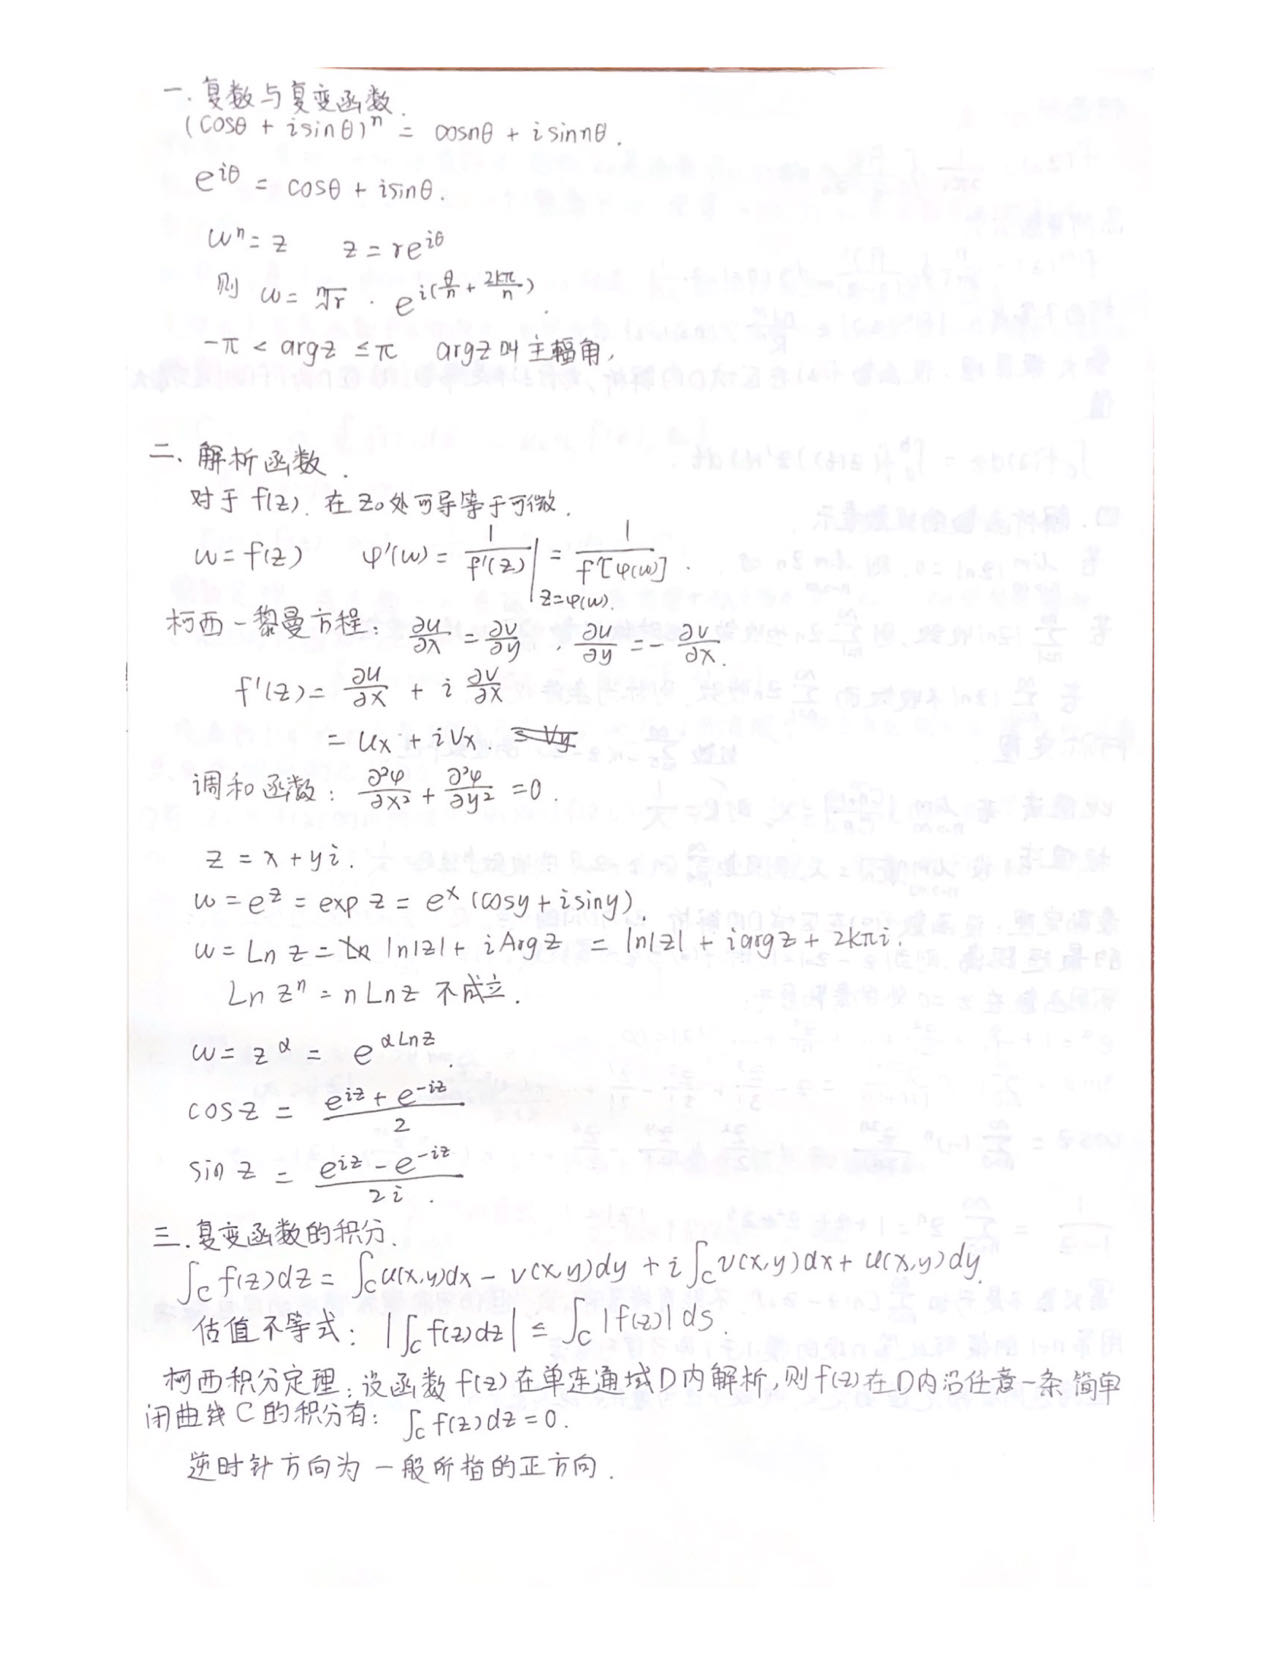 一. 复数与复变函数.
(cosθ + isinθ)ⁿ = cosnθ + isinnθ.
e^{iθ} = cosθ + isinθ.
wⁿ = z  z = re^{iθ}
则 w = ⁿ√r · e^{i(θ/n + 2kπ/n)}.
-π < argz ≤ π  argz叫主辐角.
二、解析函数.
对于 f(z). 在 z₀处可导等于可微.
w = f(z)  φ'(w) = 1/f'(z) |_{z=φ(w)} = 1/f'[φ(w)].
柯西-黎曼方程: ∂u/∂x = ∂v/∂y , ∂u/∂y = -∂v/∂x.
f'(z) = ∂u/∂x + i ∂v/∂x
= ux + ivx.
调和函数: ∂²φ/∂x² + ∂²φ/∂y² = 0.
z = x + yi.
w = e^z = exp z = e^x (cosy + isiny).
w = Ln z = ln|z| + iArgz = ln|z| + iargz + 2kπi.
Ln zⁿ = nLnz 不成立.
w = z^α = e^{αLnz}.
cosz = (e^{iz} + e^{-iz})/2
sinz = (e^{iz} - e^{-iz})/2i.
三. 复变函数的积分.
∫_C f(z)dz = ∫_C u(x,y)dx - v(x,y)dy + i∫_C v(x,y)dx + u(x,y)dy.
估值不等式: |∫_C f(z)dz| ≤ ∫_C |f(z)| ds.
柯西积分定理: 设函数f(z)在单连通域D内解析,则f(z)在D内沿任意一条简单
闭曲线C的积分有: ∫_C f(z)dz = 0.
逆时针方向为一般所指的正方向.